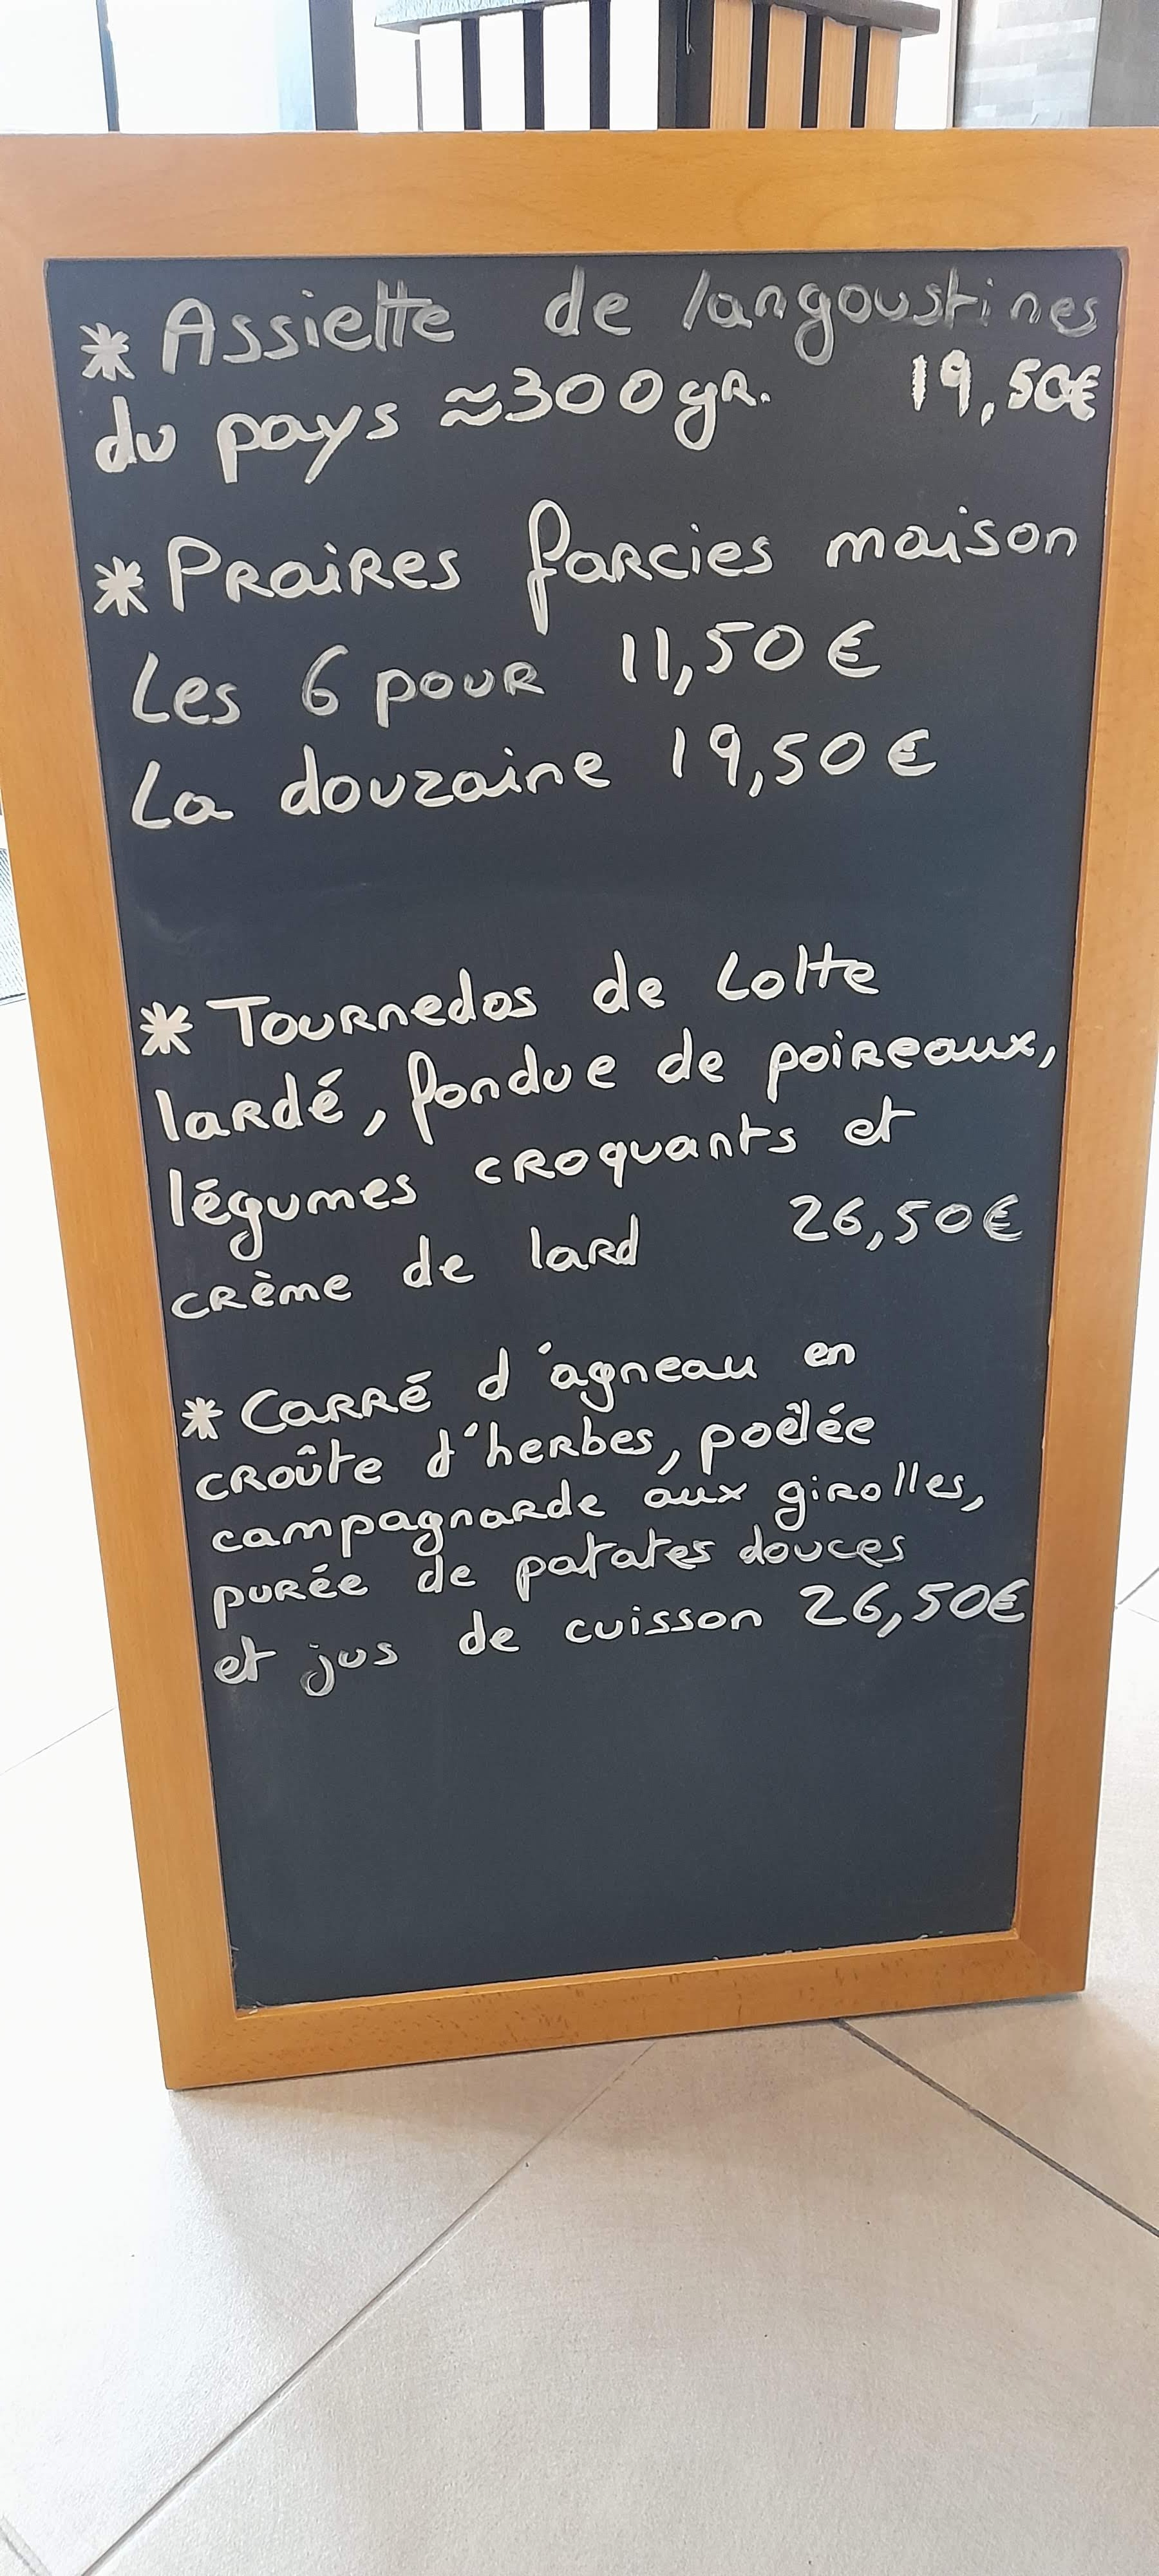 * Assiette de langoustines
du pays ≈300gr. 19,50€
* Praires farcies maison
Les 6 pour 11,50€
La douzaine 19,50€
* Tournedos de Lotte
lardé, fondue de poireaux,
légumes croquants et
crème de lard 26,50€
* Carré d'agneau en
croûte d'herbes, poêlée
campagnarde aux girolles,
purée de patates douces
et jus de cuisson 26,50€